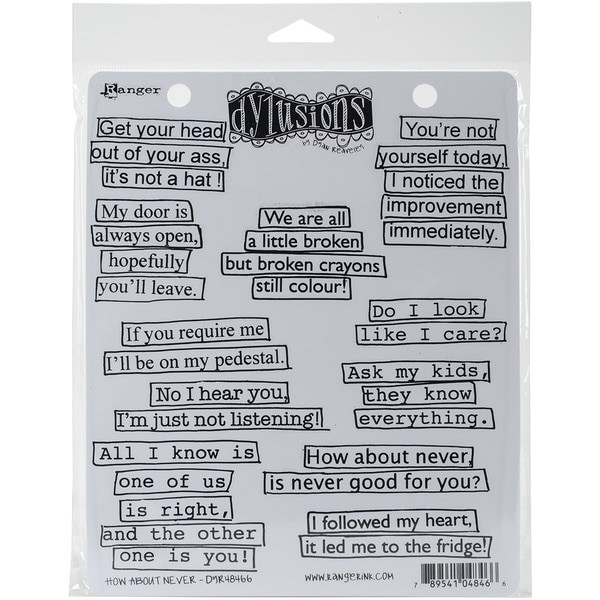 Ranger
dylusions
by Dyan Reaveley
Get your head
out of your ass,
it's not a hat !
You're not
yourself today,
I noticed the
improvement
immediately.
My door is
always open,
hopefully
you'll leave.
We are all
a little broken
but broken crayons
still colour!
Do I look
like I care?
If you require me
I'll be on my pedestal.
Ask my kids,
they know
everything.
No I hear you,
I'm just not listening!!
All I know is
one of us
is right,
and the other
one is you!
How about never,
is never good for you?
I followed my heart,
it led me to the fridge!
HOW ABOUT NEVER - DYR48466
WWW.RANGERINK.COM
7 89541 04846 6